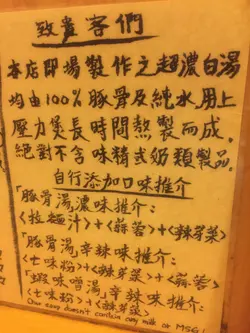 致貴客們
本店即場製作之超濃白湯
均由100%豚骨及純水用上
壓力煲長時間熱製而成.
絕對不含味精或奶類製品.
自行添加口味推介
「豚骨湯,濃味推介:
<拉麵汁>+<蒜蓉>+<辣芽菜>
「豚骨湯,辛辣味推介:
<七味粉>+<辣芽菜>+<蒜蓉>
「蝦味噌湯,辛辣味推介:
<七味粉>+<辣芽菜>
Our soup doesn't contain any milk or MSG!